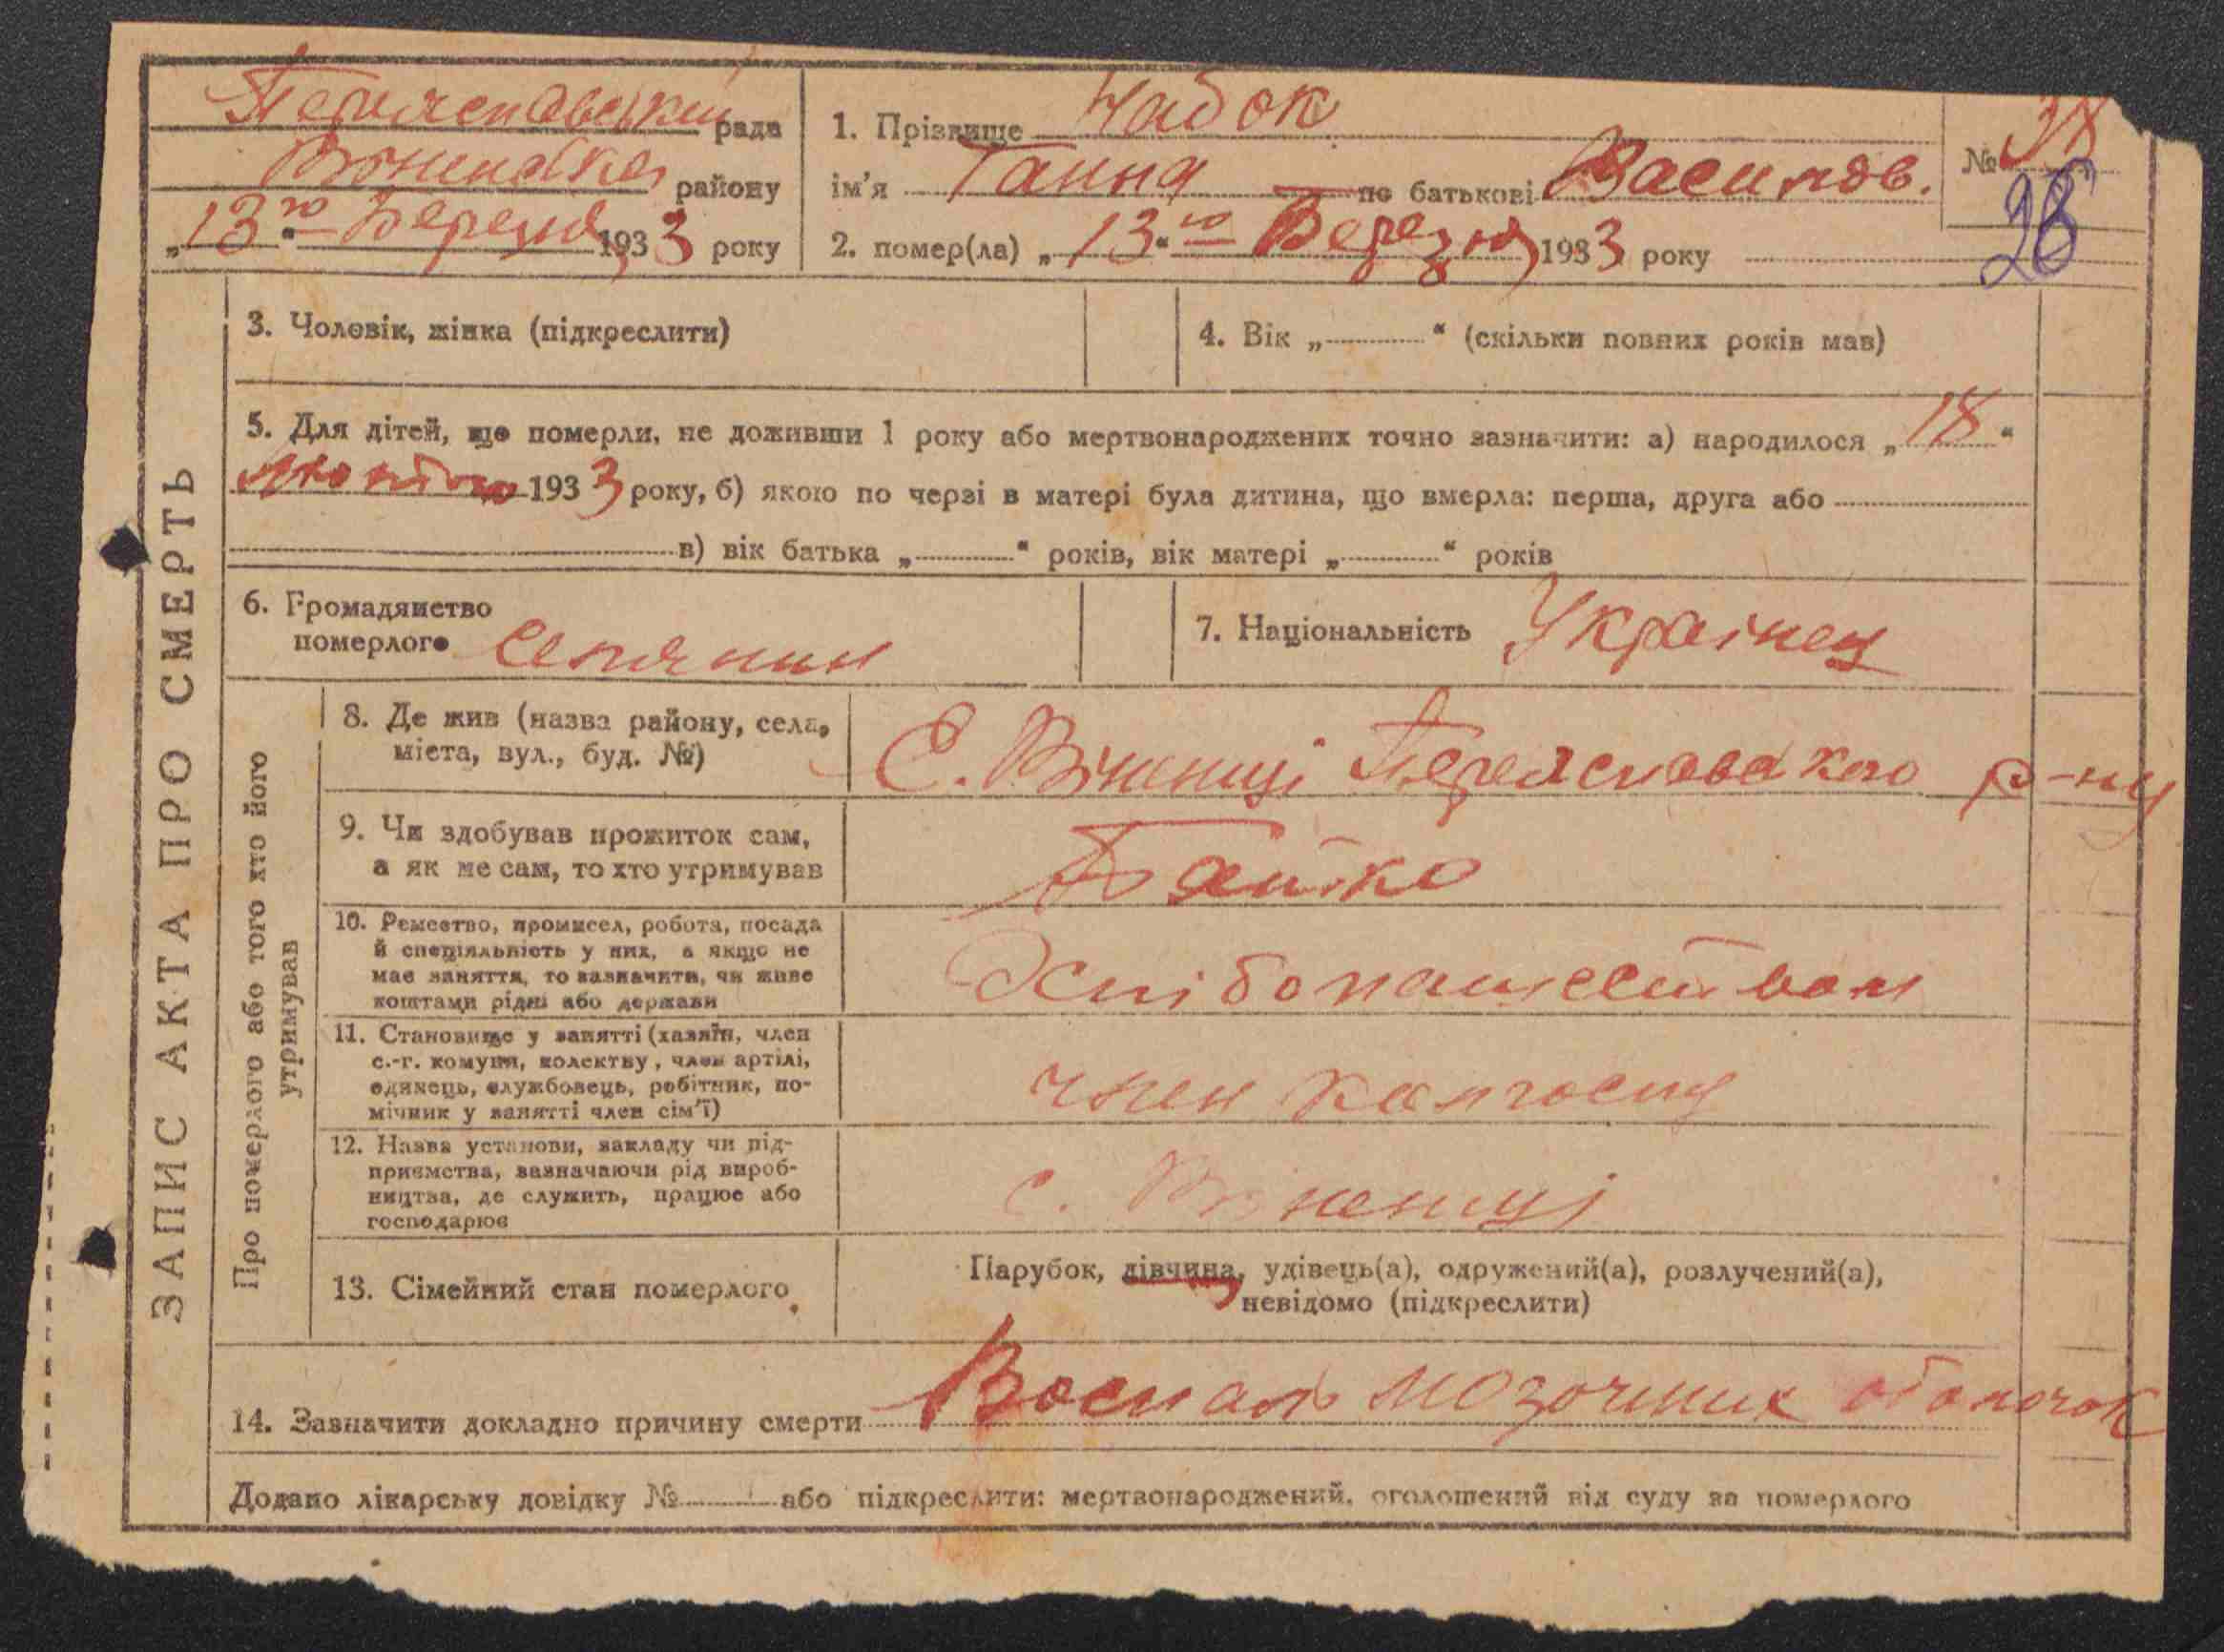 Переяславський рада
району
„13го“ Березня 1933 року
1. Прізвище Чабок
ім’я Ганна по батькові Василов.
2. помер(ла) „13“го Березня 1933 року
№ 38
28
3. Чоловік, жінка (підкреслити)
4. Вік „ “ (скільки повних років мав)
5. Для дітей, що померли, не доживши 1 року або мертвонароджених точно зазначити: а) народилося „18“
лютого 1933 року, б) якою по черзі в матері була дитина, що вмерла: перша, друга або
в) вік батька „ “ років, вік матері „ “ років
6. Громадянство
померлого Селянин
7. Національність Українец
ЗАПИС АКТА ПРО СМЕРТЬ
Про померлого або того хто його
утримував
8. Де жив (назва району, села,
міста, вул., буд. №)
С. Вінинці Переяславского р-ну
9. Чи здобував прожиток сам,
а як не сам, то хто утримував
Батько
10. Ремество, промисел, робота, посада
й спеціяльність у них, а якщо не
має заняття, то зазначити, чи живе
коштами рідні або держави
Хлібопашеством
11. Становище у занятті (хазяїн, член
с.-г. комуни, колектву, член артілі,
одинець, службовець, робітник, по-
мічник у занятті член сім’ї)
член колгоспу
12. Назва установи, закладу чи під-
приємства, зазначаючи рід вироб-
ництва, де служить, працює або
господарює
с. Віненці
13. Сімейний стан померлого
Парубок, дівчина, удівець(а), одружений(а), розлучений(а),
невідомо (підкреслити)
14. Зазначити докладно причину смерти Воспаль мозочних оболочок
Додано лікарську довідку № або підкреслити: мертвонароджений, оголошений від суду за померлого